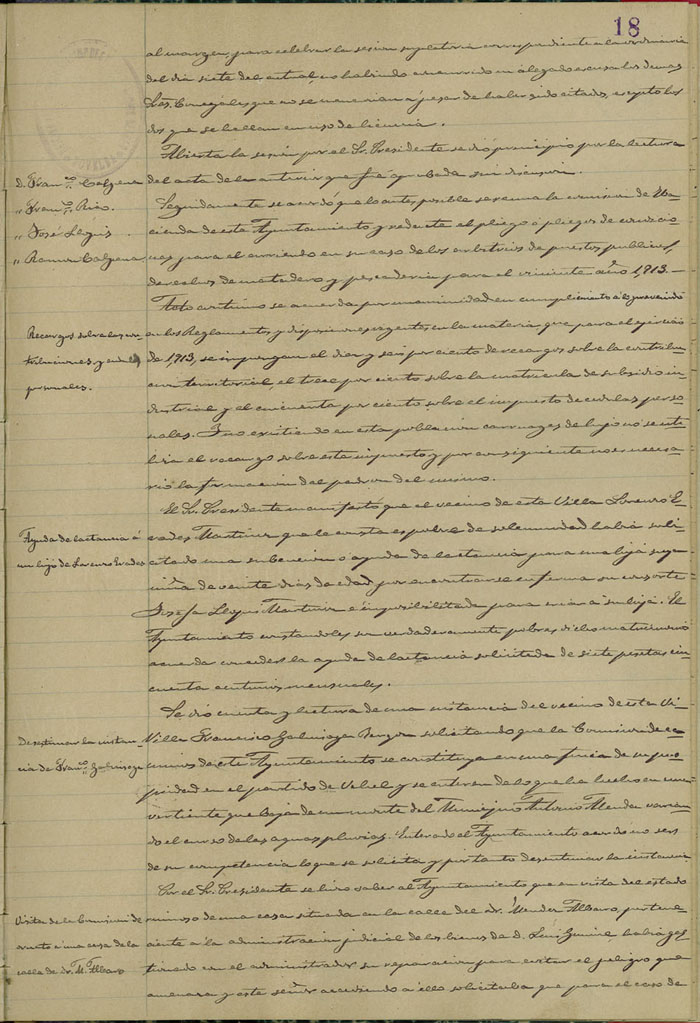 18
al margen, para celebrar la sesion supletoria correspondiente a la ordinaria
del dia siete del actual, no habiendo concurrido ni alegado excusa los demas
Sres. Concejales que no se mencionan á pesar de haber sido citados, excepto los
dos que se hallan en uso de licencia.
Abierta la sesión por el Sr. Presidente se dió principio por la lectura
D. Franco. Calzena
del acta de la anterior que fue aprobada sin discusion.
" Franco. Rico.
Seguidamente se acordó que lo antes posible se reuna la comision de Ha-
" José Seguí
cienda de este Ayuntamiento y redacte el pliego ó pliegos de condicio-
" Ramon Calzena
nes para el arriendo en su caso de los arbitrios de puestos publicos,
derechos de matadero y pescaderia para el viniente año 1,913.—
Acto contínuo se acuerda por unanimidad en cumplimiento á lo prevenido
Recargos sobre las con-
en los Reglamentos y disposiciones vigentes en la materia que para el ejercicio
tribuciones y cédulas
de 1,913, se impongan el diez y seis por ciento de recargos sobre la contribu-
personales.
cion territorial, el trece por ciento sobre la matricula de subsidio in-
dustrial y el cincuenta por ciento sobre el impuesto de cedulas perso-
nales. Y no existiendo en esta poblacion carruages de lujo no se uti-
liza el recargo sobre este impuesto y por consiguiente no es necesa-
rio la formacion del padron del mismo.
El Sr. Presidente manifestó que el vecino de esta Villa Lorenzo
Ayuda de lactancia á
Martinez que le consta es pobre de solemnidad habia soli-
un hijo de Lorenzo
citado una subencion o ayuda de lactancia para una hija suya
de veinte dias de edad por encontrarse enferma su consorte
Josefa Martinez é imposibilitada para criar á su hija. El
Ayuntamiento constandole ser verdaderamente pobres dicho matrimonio
acuerda conceder la ayuda de lactancia solicitada de siete pesetas cin-
cuenta centimos mensuales.
Se dió cuenta y lectura de una instancia del vecino de esta Vi-
Desestimar la instan-
Villa Francisco solicitando que la Comision de ca-
cia de Franco.
minos de este Ayuntamiento se constituya en una finca de su pro-
piedad en el partido de y se enteren de lo que ha hecho en una
vertiente que baja de un monte del Municipio Antonio varian-
do el curso de las aguas pluvias. Enterado el Ayuntamiento acordó no ser
de su competencia lo que se solicita y por tanto desestimar la instancia
Por el Sr. Presidente se hizo saber al Ayuntamiento que en vista del estado
Visita de la Comision de
ruinoso de una casa situada en la calle del Dr. Mendez Albaro, pertene-
ornato á una casa de la
ciente a la administracion judicial de los bienes de D. Luis habia ges-
calle de Dr. M. Albaro
tionado con el administrador su reparacion para evitar el peligro que
amenaza y este señor accediendo á ello solicitaba que para el caso de